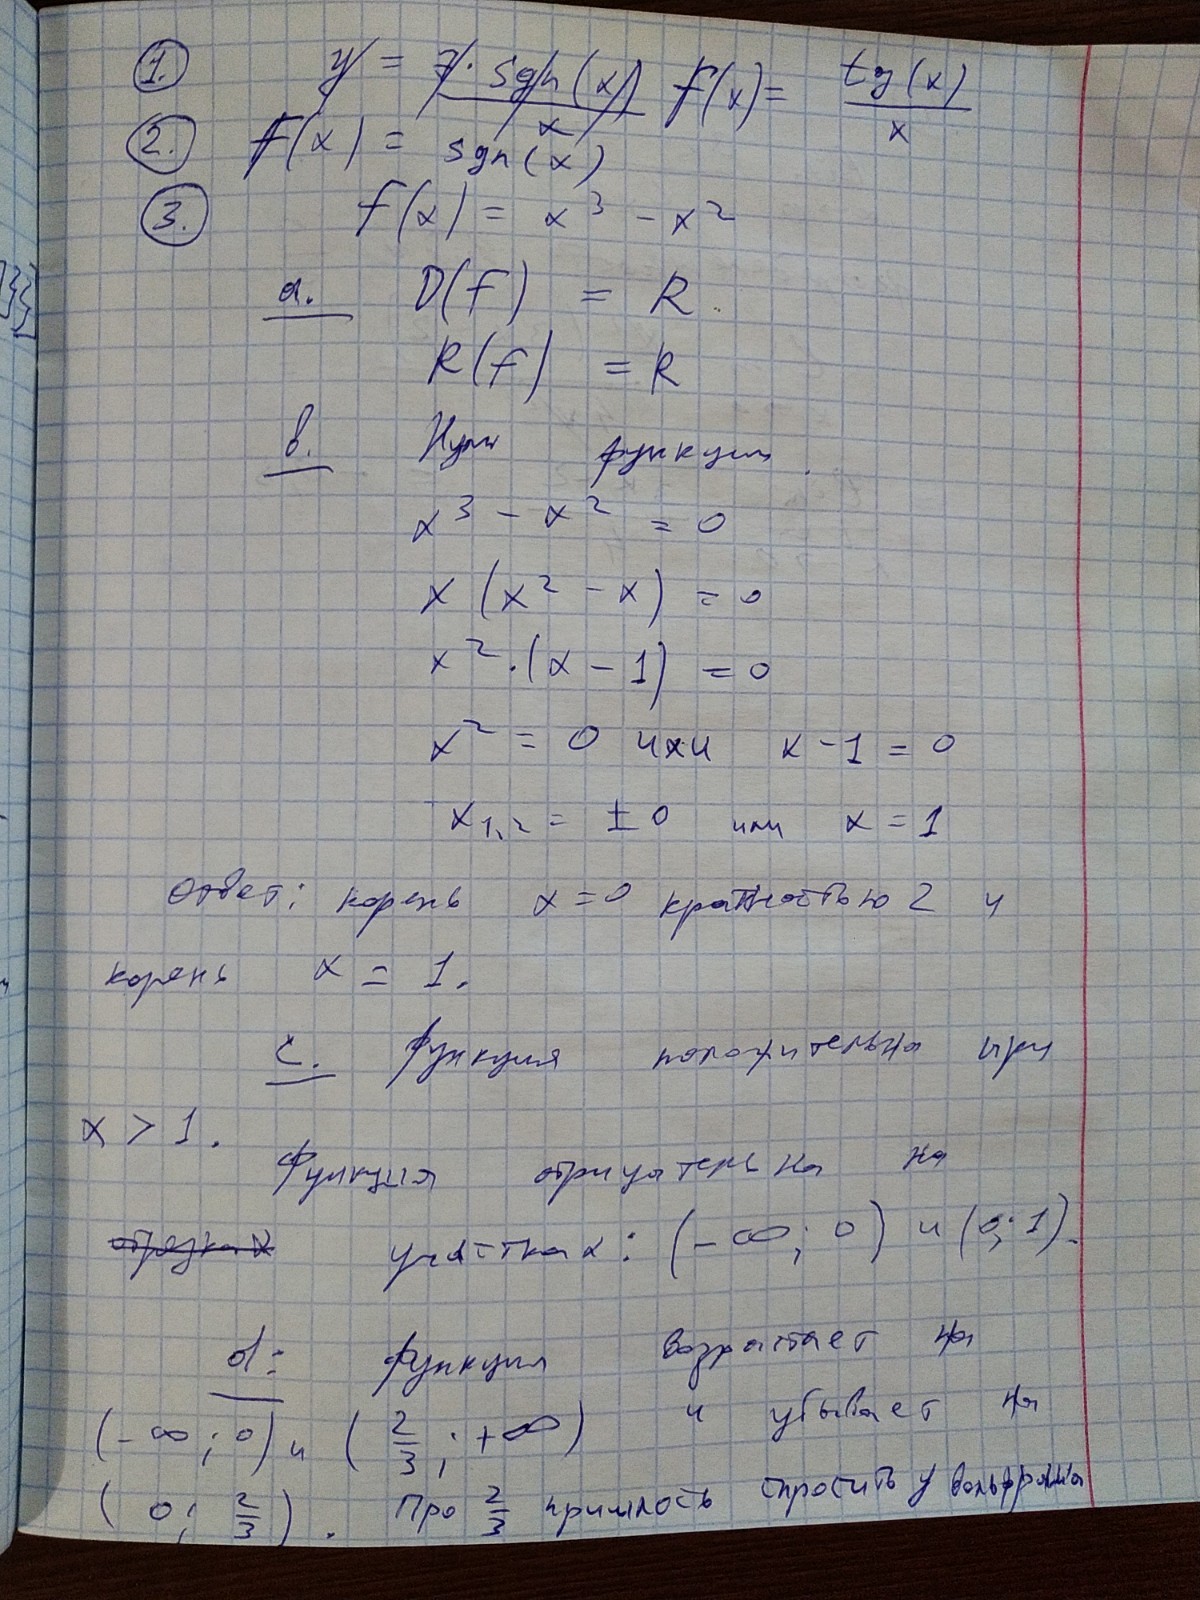 1. y = 7· sgn(x) / x f(x) = tg(x) / x
2. f(x) = sgn(x)
3. f(x) = x³ - x²
a. D(f) = R.
R(f) = R
b. Нули функции.
x³ - x² = 0
x (x² - x) = 0
x² · (x - 1) = 0
x² = 0 или x - 1 = 0
x₁,₂ = ± 0 или x = 1
Ответ: корень x = 0 кратностью 2 и
корень x = 1.
c. Функция положительна при
x > 1.
Функция отрицательна на
отрезках участках: (-∞; 0) и (0; 1).
d: Функция возрастает на
(-∞; 0) и (2/3; +∞) и убывает на
(0; 2/3). Про 2/3 пришлось спросить у вольфрама